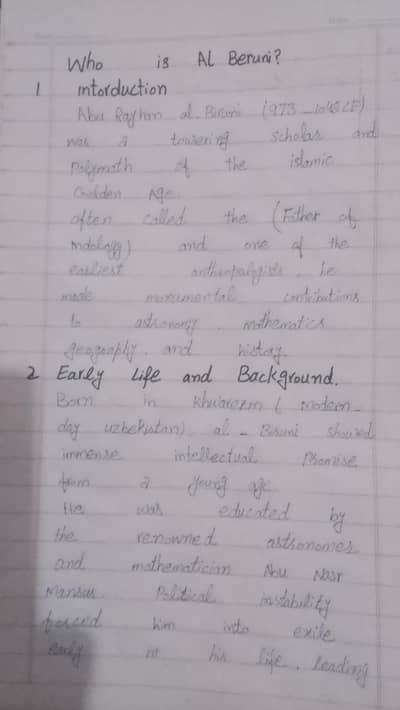 Who is AL Beruni?
1 intorduction
Abu Rayhan al-Biruni (973_1048 CE)
was a towering scholar and
Polymath of the islamic
Golden Age.
often called the (Father of
indology) and one of the
earliest he
made monumental contributions
to astronomy, mathematics
geography, and history.
2 Early Life and Background.
Born in Khwarezm (modern-
day uzbekistan) al-Biruni showed
immense intellectual Promise
from a young age
He was educated by
the renowned astronomer
and mathematician Abu Nasr
Mansur. Political instability
forced him into exile
early in his life, leading